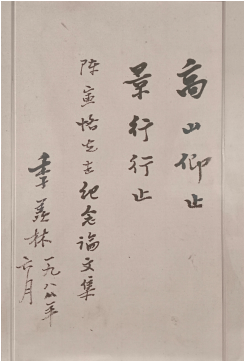 高山仰止
景行行止
陈寅恪先生纪念论文集
季羡林
一九八八年
六月